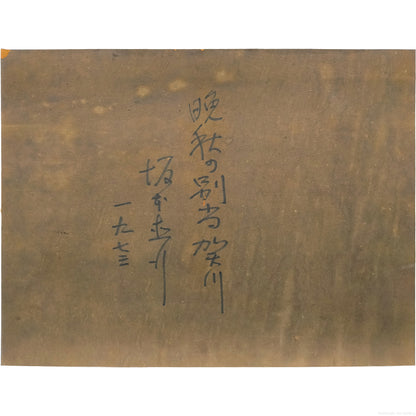 晩秋の別当賀川
坂本直行
一九七三